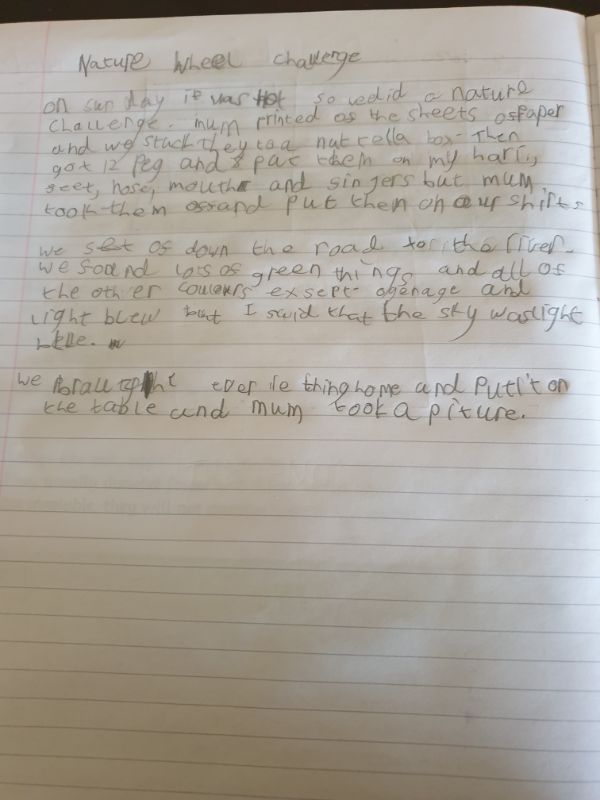 Nature Wheel Challenge
on sunday it was Hot so wedid a nature
Challenge. mum printed os the sheets ospaper
and we stuck they to a nutrella box. Then
got 12 peg and I put them on my harr,
seet, nose, mouth and singers but mum
took them os and put them on our shirts
we set os down the road to the river.
we sound lots of green things and all os
the other coulers exsept ohenage and
light blew but I said that the sky was light
blue.
we everie thing home and put it on
the table and mum took a piture.